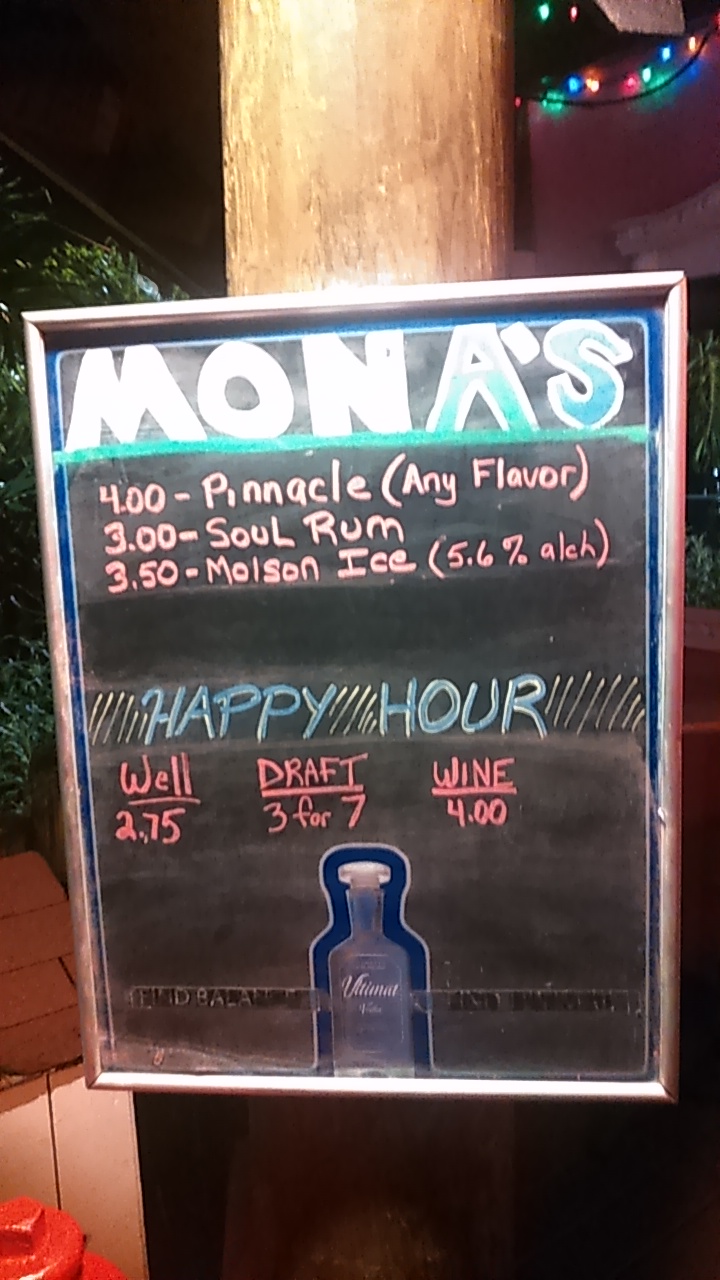 MONA'S
4.00 - Pinnacle (Any Flavor)
3.00 - Soul Rum
3.50 - Molson Ice (5.6 % alch)
HAPPY HOUR
Well DRAFT WINE
2.75 3 for 7 4.00
Ultimat
Vodka